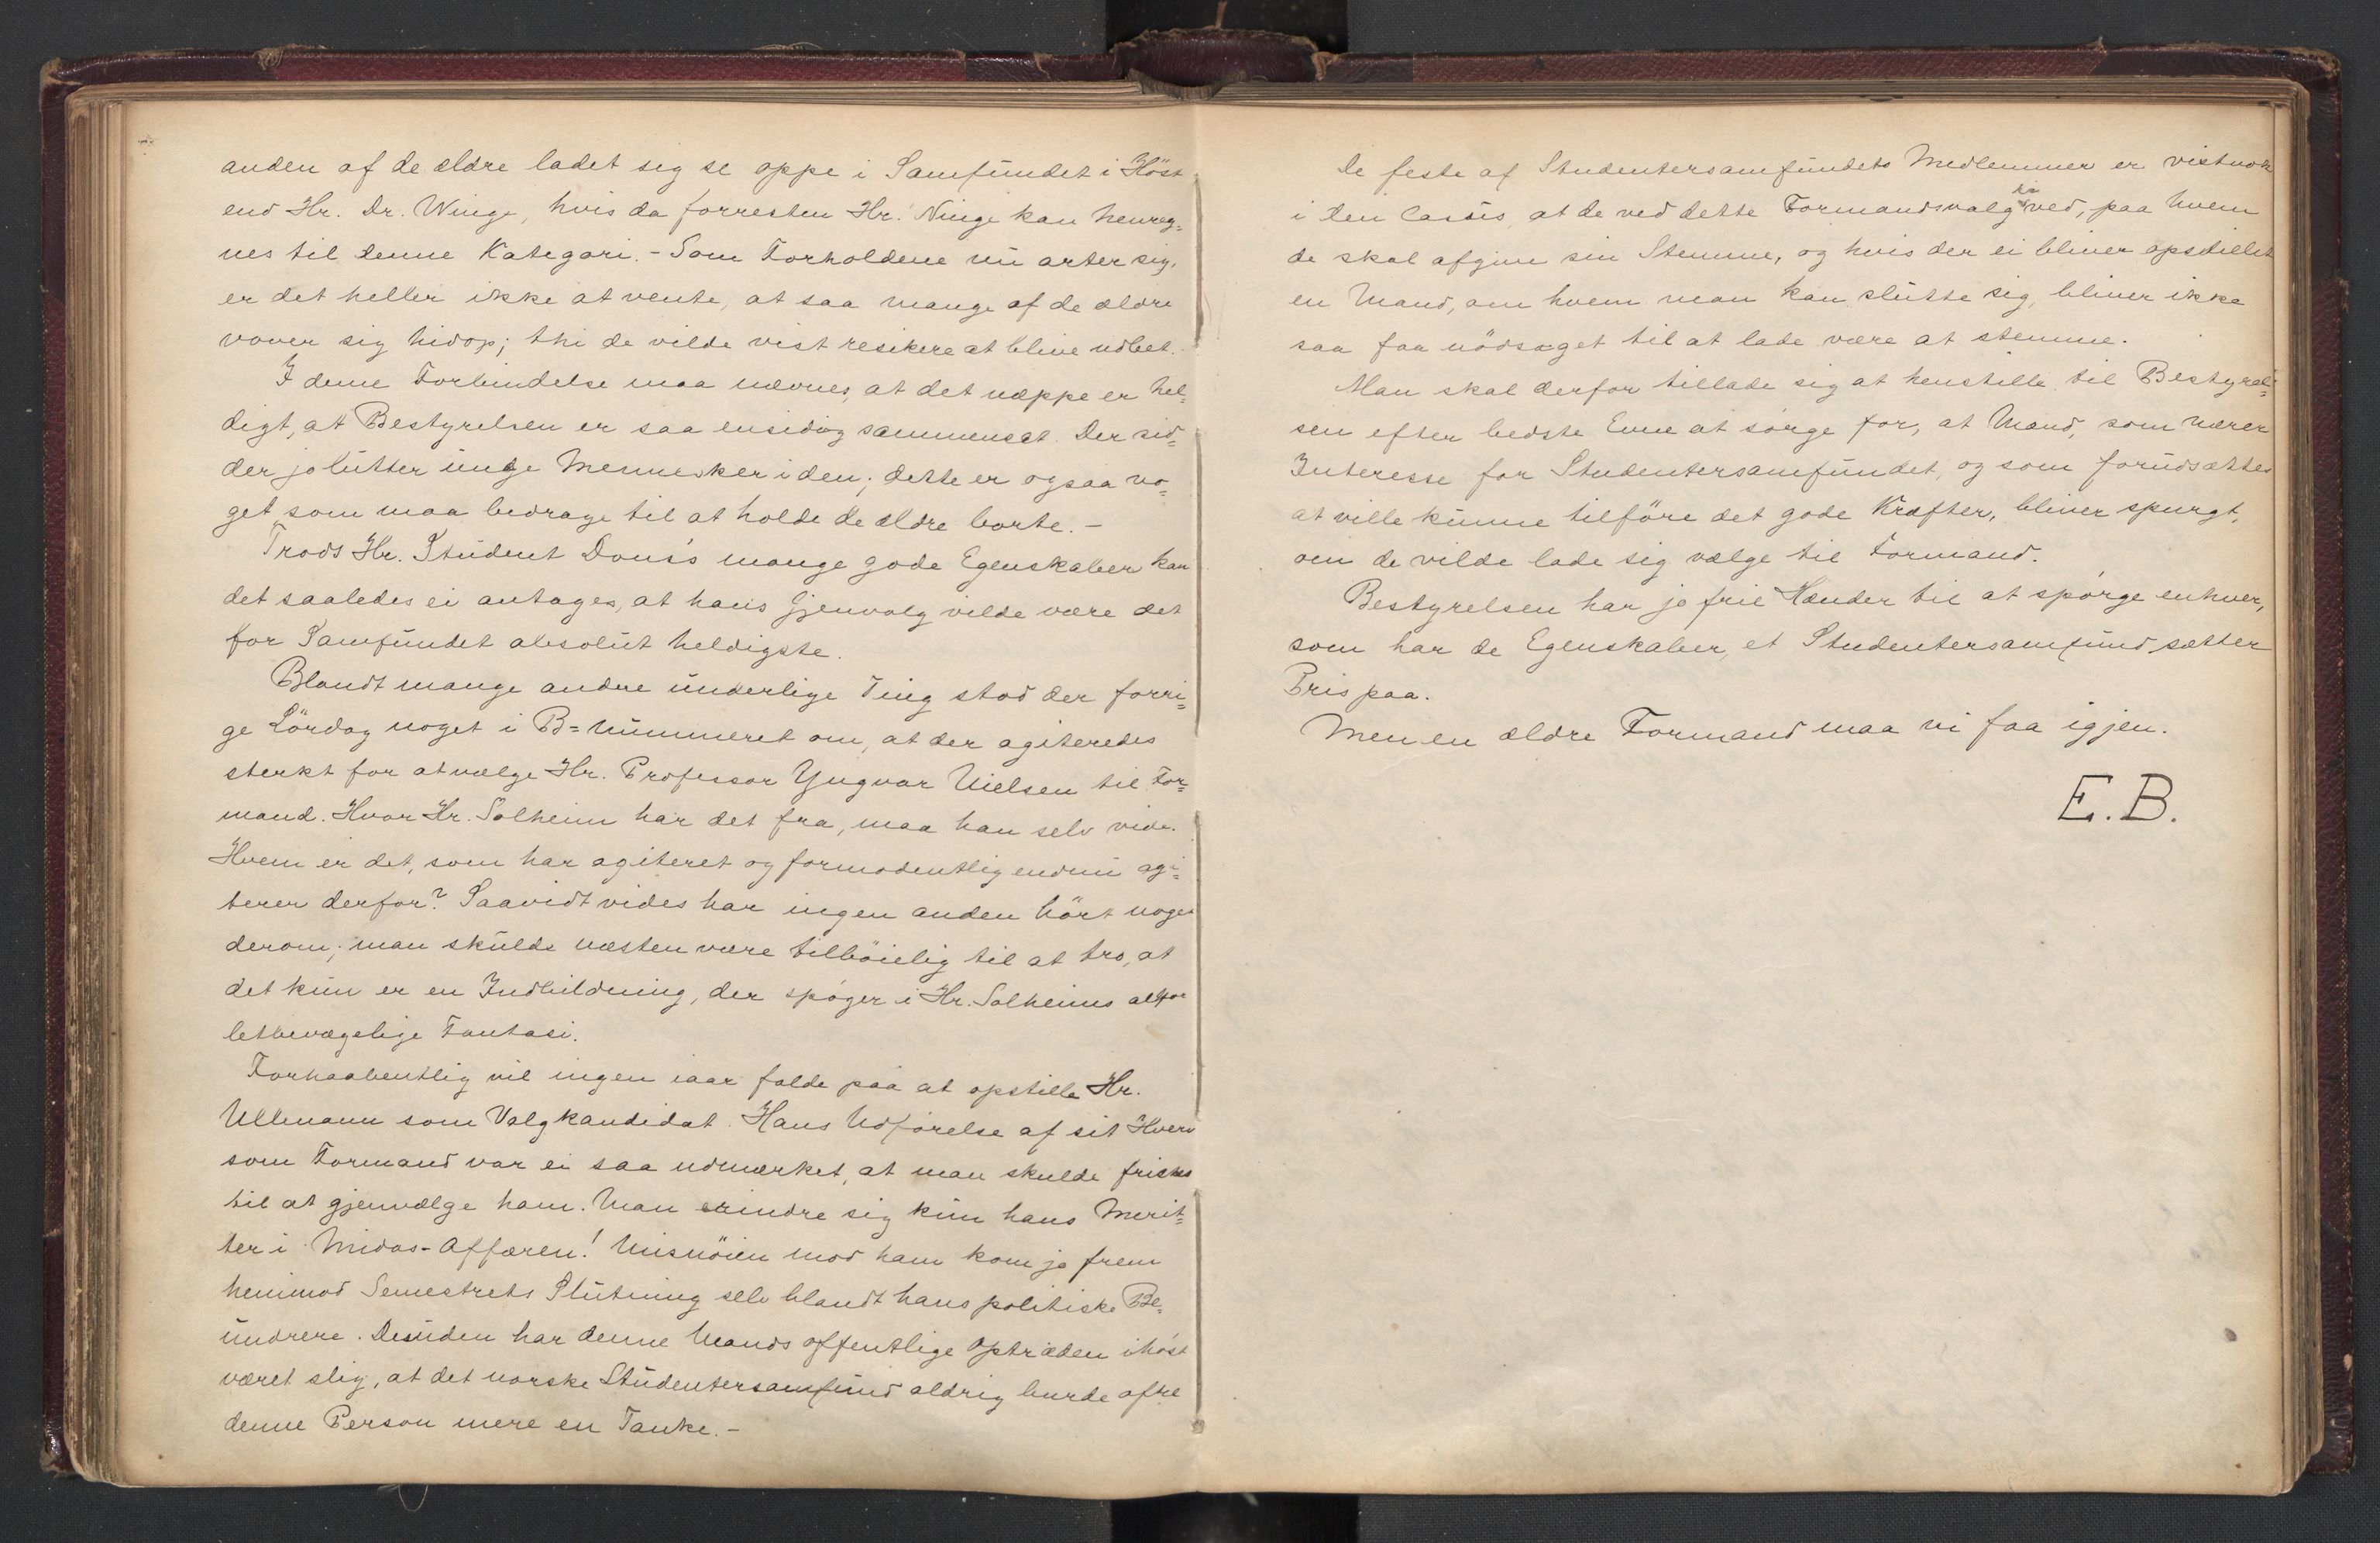 anden af de ældre ladet sig se oppe i Samfundet i Höst
end Hr. Dr. Winge, hvis da forresten Hr. Winge kan henreg=
nes til denne Kategori. - Som Forholdene nu arter sig,
er det heller ikke at vente, at saa mange af de ældre
vover sig hidop; thi de vilde vist resikere at blive udleet.
I denne Forbindelse maa nævnes, at det næppe er hel=
digt, at Bestyrelsen er saa ensidig sammensat. Der sid=
der jo lutter unge Mennesker i den; dette er ogsaa no=
get som maa bedrage til at holde de ældre borte. -
Trods Hr. Student Dons's mange gode Egenskaber kan
det saaledes ei antages, at hans Gjenvalg vilde være det
for Samfundet absolut heldigste.
Blandt mange andre underlige Ting stod der forri=
ge Lördag noget i B=Nummeret om, at der agiteredes
sterkt for at vælge Hr. Professor Yngvar Nielsen til For=
mand. Hvor Hr. Solheim har det fra, maa han selv vide.
Hvem er det, som har agiteret og formodentlig endnu agi=
terer derfor? Saavidt vides har ingen anden hört noget
derom; man skulde næsten være tilböielig til at tro, at
det kun er en Indbildning, der spöger i Hr. Solheims altfor
letbevægelige Fantasi.
Forhaabentlig vil ingen iaar falde paa at opstille Hr.
Ullmann som Valgkandidat. Hans Udförelse af sit Hverv
som Formand var ei saa udmærket, at man skulde fristes
til at gjenvælge ham. Man erindre sig kun hans Merit=
ter i Midas-Affæren! Misnöien mod ham kom jo frem
henimod Semestrets Slutning selv blandt hans politiske Be=
undrere. Desuden har denne Mands offentlige Optræden ihöst
været slig, at det norske Studentersamfund aldrig burde ofre
denne Person mere en Tanke. -
De feste af Studentersamfundets Medlemmer er vistnok
i den Casus, at de ved dette Formandsvalg ei ved, paa hvem
de skal afgive sin Stemme, og hvis der ei bliver opstillet
en Mand, om hvem man kan slutte sig, bliver ikke
saa faa nödsaget til at lade være at stemme.
Man skal derfor tillade sig at henstille til Bestyrel=
sen efter bedste Evne at sörge for, at Mænd, som nærer
Interesse for Studentersamfundet, og som forudsættes
at ville kunne tilföre det gode Kræfter, bliver spurgt,
om de vilde lade sig vælge til Formand.
Bestyrelsen har jo frie Hænder til at spörge enhver,
som har de Egenskaber, et Studentersamfund sætter
Pris paa.
Men en ældre Formand maa vi faa igjen.
E.B.